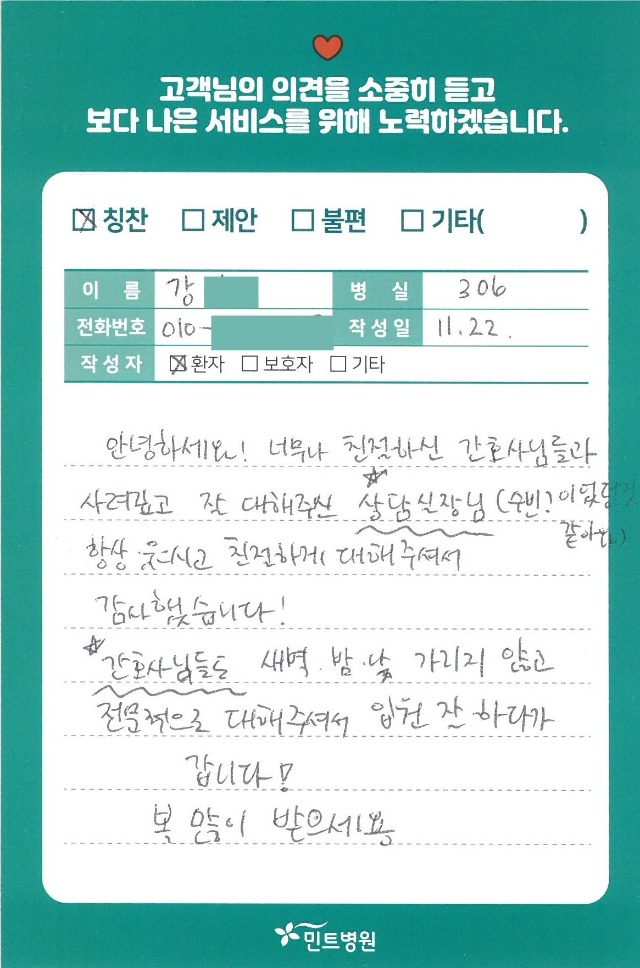 고객님의 의견을 소중히 듣고
보다 나은 서비스를 위해 노력하겠습니다.
☒ 칭찬 □ 제안 □ 불편 □ 기타( )
이 름 강 병 실 306
전화번호 010- 작성일 11.22.
작성자 ☒ 환자 □ 보호자 □ 기타
안녕하세요! 너무나 친절하신 간호사님들과
사려깊고 잘 대해주신 ☆상담실장님 (수빈? 이었던것
같아요)
항상 웃으시고 친절하게 대해주셔서
감사했습니다!
☆간호사님들도 새벽.밤.낮 가리지 않고
전문적으로 대해주셔서 입원 잘 하다가
갑니다!
복 많이 받으세요
민트병원